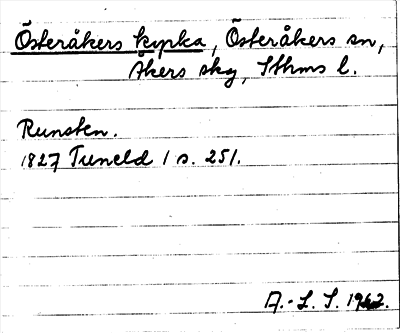 Österåkers kyrka, Österåkers sn,
Åkers skg, Sthms l.
Runsten.
1827 Tuneld 1 s. 251.
A.-L. S. 1962.